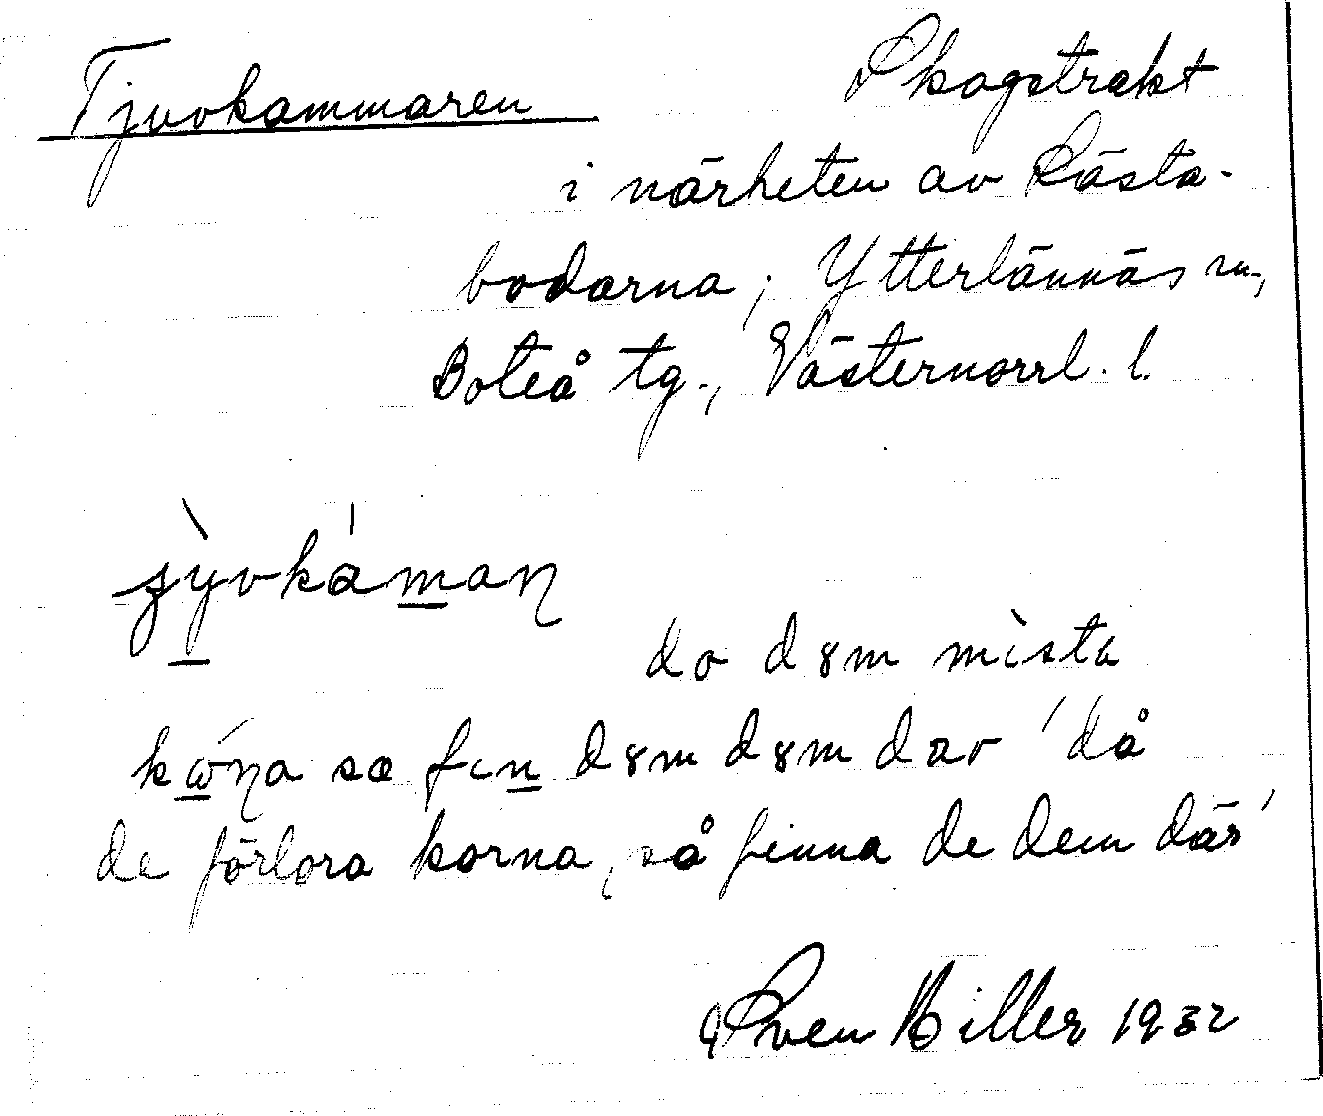 Tjuvkammaren Skogstrakt
i närheten av Rästa-
bodarna; Ytterlännäs sn,
Boteå tg., Västernorrl. l.
do dɞm mìsta
sæ fin dɞm dɞm dær 'då
de förlora korna, så finna de dem där'
Sven Hiller 1932